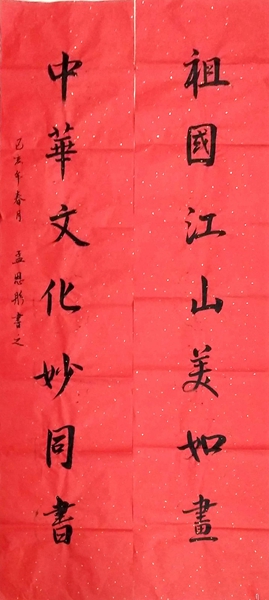 祖國江山美如畫
中華文化妙同書
己亥年春月 孟恩彤書之